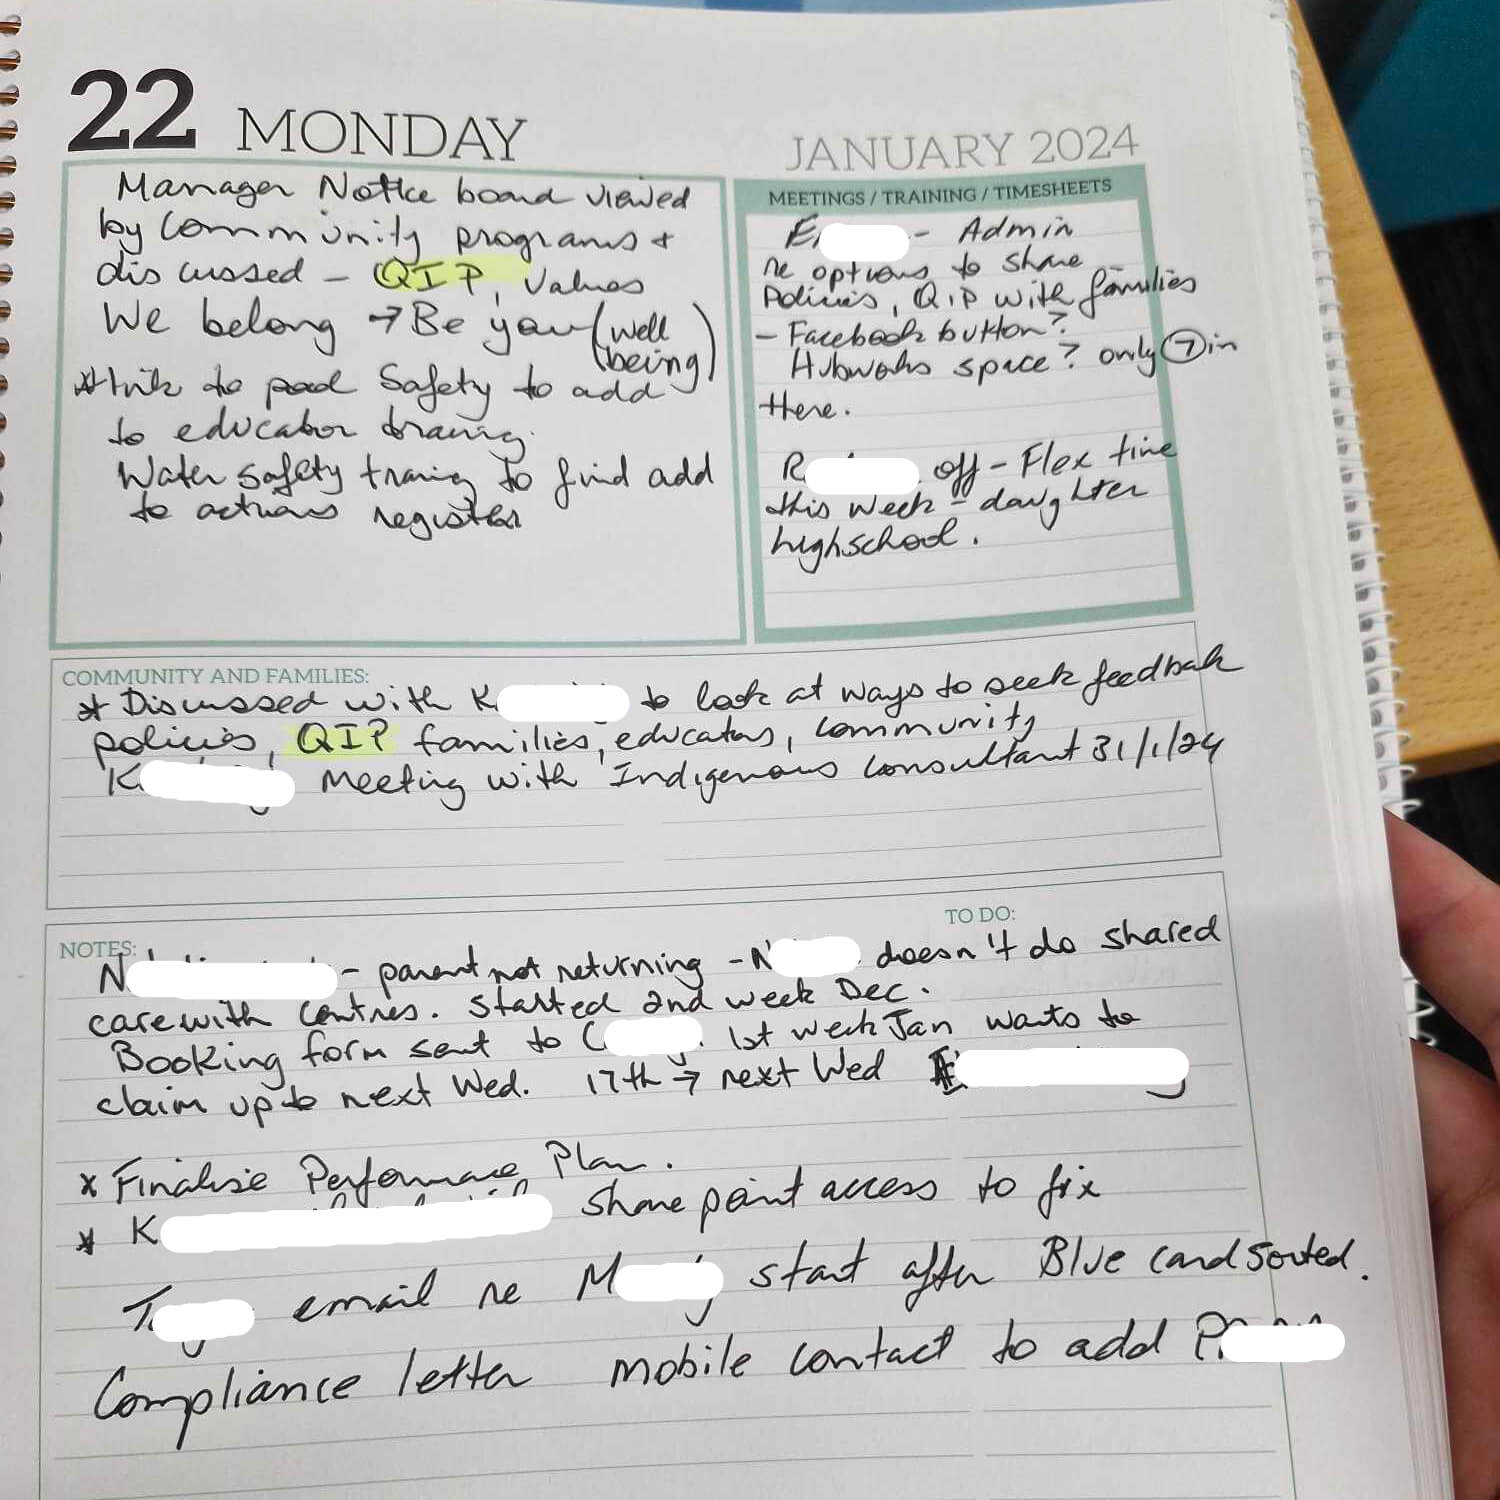 22 MONDAY
JANUARY 2024
Manager Notice board viewed
by Community programs +
discussed - QIP, values
We belong → Be you (well
being)
* link to pool Safety to add
to educator training.
Water safety training to find add
to actions register
MEETINGS / TRAINING / TIMESHEETS
E - Admin
re options to share
Policies, QIP with families
- Facebook button?
Hubworks space? only 7 in
there.
R off - Flex time
this week - daughter
highschool.
COMMUNITY AND FAMILIES:
* Discussed with K to look at ways to seek feedback
policies, QIP families, educators, community
K Meeting with Indigenous Consultant 31/1/24
NOTES:
TO DO:
N - parent not returning - N doesn't do shared
care with Centres. Started 2nd week Dec.
Booking form sent to C 1st week Jan wants to
claim up to next Wed. 17th → next Wed
x Finalise Performance Plan.
* K Share point access to fix
T email re M start after Blue Card sorted.
Compliance letter mobile contact to add P